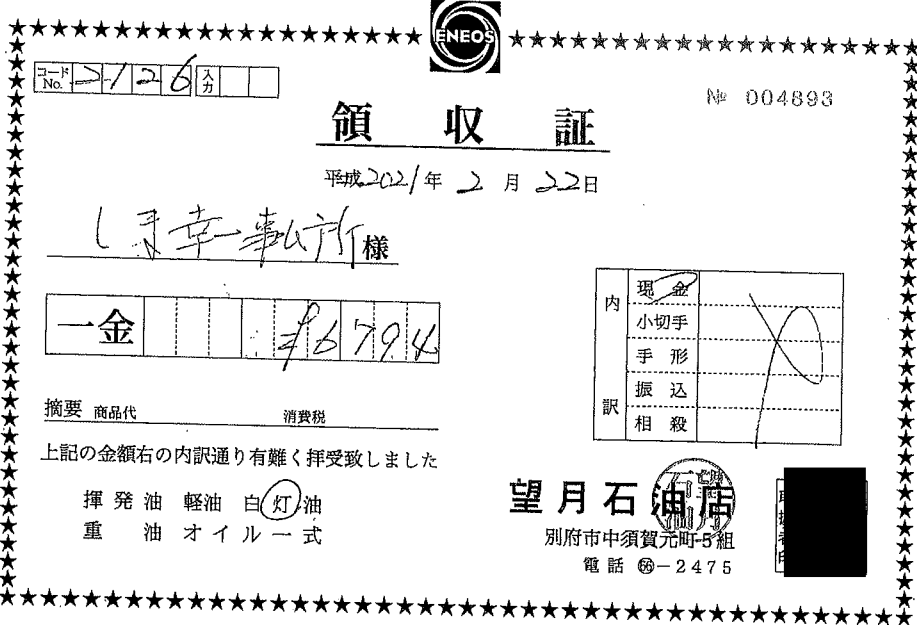 ENEOS
コードNo. 2126 入力
№ 004893
領収証
平成2021年2月22日
しま幸一事ム所様
一金 ¥6794
内訳
現金
小切手
手形
振込
相殺
摘要 商品代 消費税
上記の金額右の内訳通り有難く拝受致しました
揮発油 軽油 白灯油
重油 オイル一式
望月石油店
別府市中須賀元町5組
電話 66-2475